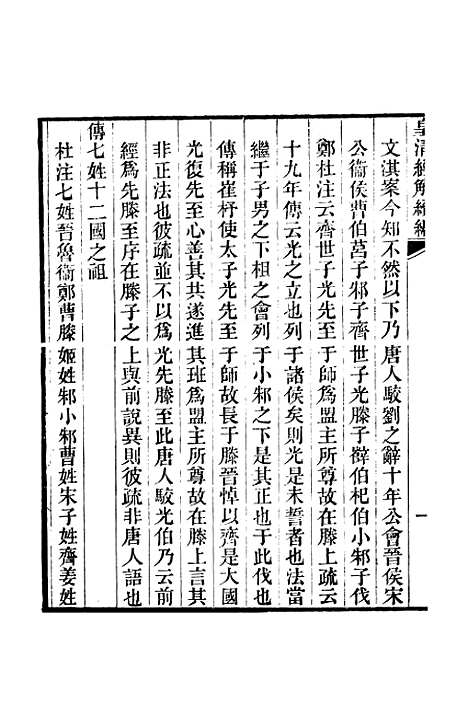 皇清經解續編
文淇案今知不然以下乃唐人駮劉之辭十年公會晉侯宋
公衞侯曹伯莒子邾子齊世子光滕子薛伯杞伯小邾子伐
鄭杜注云齊世子光先至于師爲盟主所尊故在滕上疏云
十九年傳云光之立也列于諸侯矣則光是未誓者也法當
繼于子男之下相之會列于小邾之下是其正也于此伐也
傳稱崔杼使太子光先至于師故長于滕晉悼以齊是大國
光復先至心善其共遂進其班爲盟主所尊故在滕上言其
非正法也彼疏並不以爲光先滕至此唐人駮光伯乃云前
經爲先滕至序在滕子之上與前說異則彼疏非唐人語也
傳七姓十二國之祖
杜注七姓晉魯衞鄭曹滕姬姓邾小邾曹姓宋子姓齊姜姓